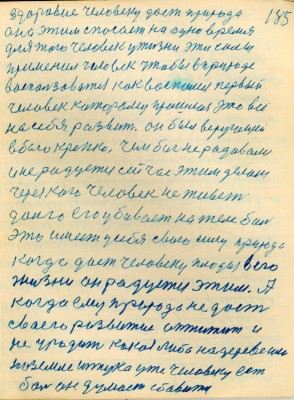 185
здоровие человеку дает природа
она этим спасает на одно время
для того человек у жизни эти силы
применил человек чтобы в природе
воспользоватся как воспольз первый
человек каторому пришлося это всё
на себя развит. он был верующий
в бога крепко. Чем бог не радували
и не радуется сейчас этим делам
через кого человек не живет
долго его убивает на теле бол
это имеет у себя свою силу природа
когда дает человеку плоды в его
жизни он радуется этим. А
когда ему природа не дает
своего развитие аппитит и
не уродит какая либо на дереве или
на земле штука уже человеку ест
бал он думает збавит